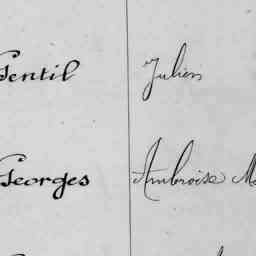 Gentil Julien
Georges Ambroise M